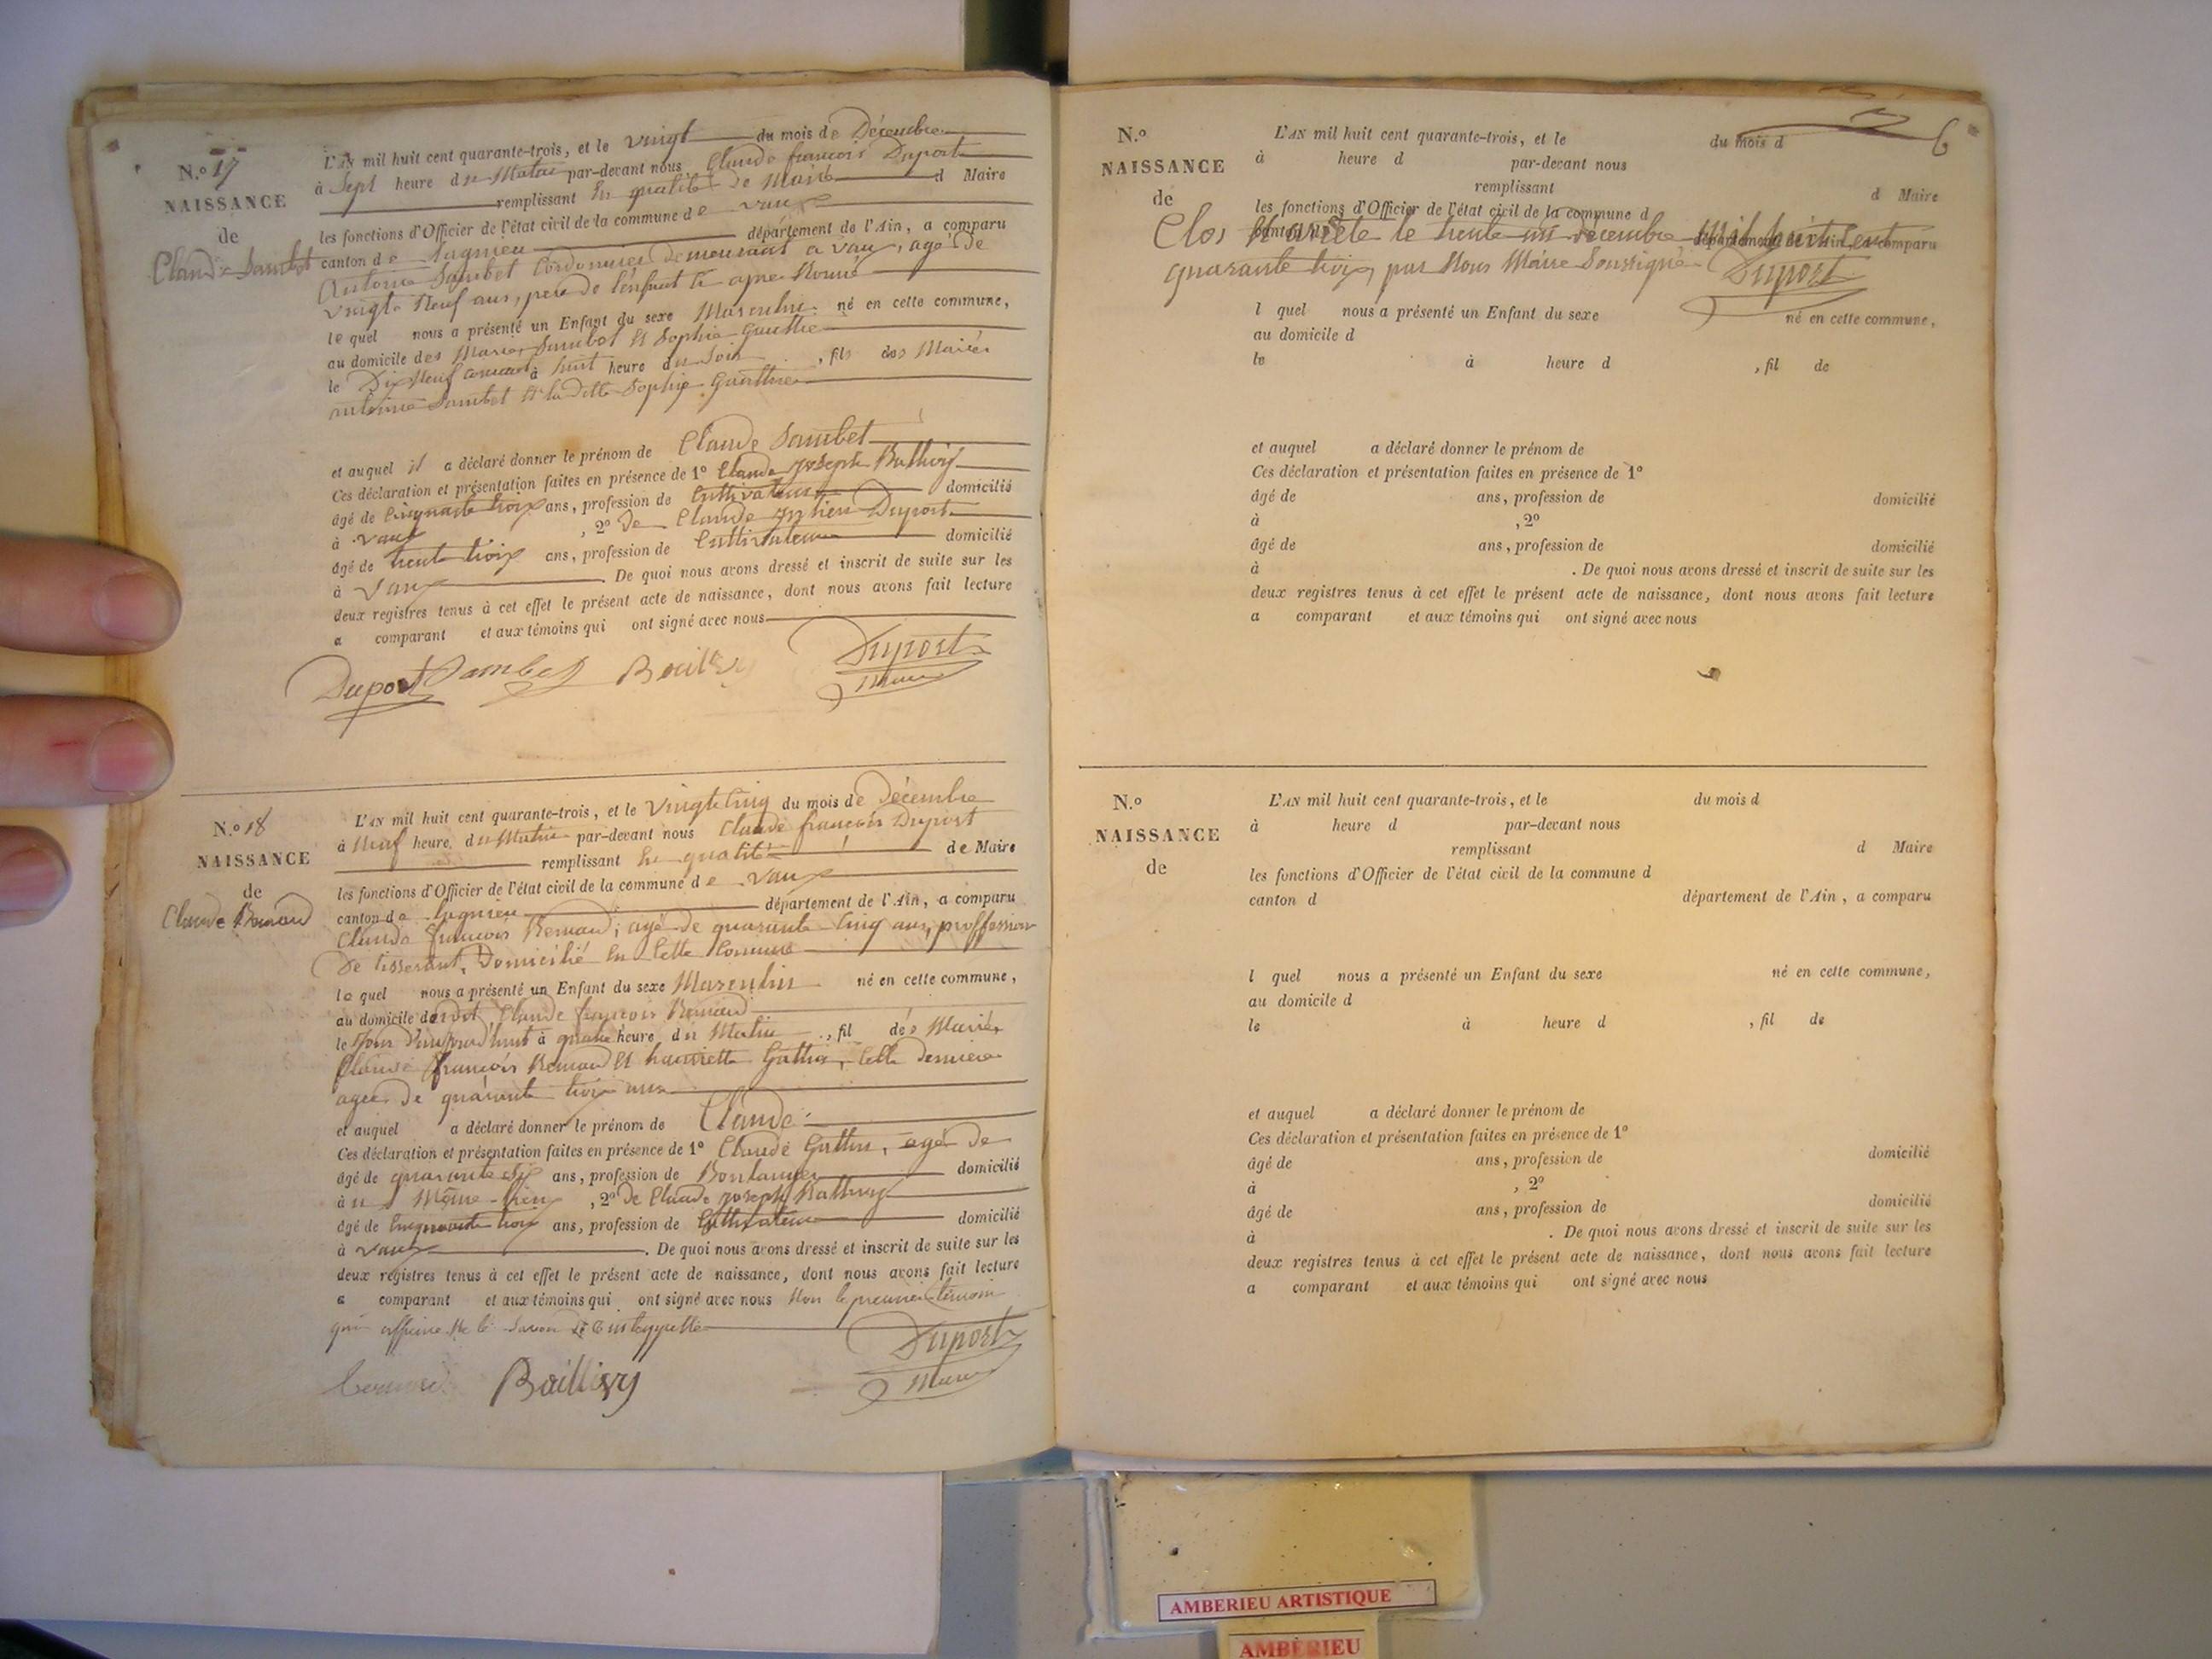 N.º 17
NAISSANCE
de
Claude Sambet
L'AN mil huit cent quarante-trois, et le vingt du mois de Décembre
à Sept heure du Matin par-devant nous Claude françois Duport
remplissant En qualité de Maire d Maire
les fonctions d'Officier de l'état civil de la commune de vaux
canton de Lagnieu département de l'Ain, a comparu
Antoine Sambet Cordonnier demeurant a vaux, agé de
vingt Neuf ans, pere de l'enfant ci apres Nommé
le quel nous a présenté un Enfant du sexe Masculin né en cette commune,
au domicile des Mariés Sambet Et Sophie Gauthier
le Dix Neuf courant à huit heure du Soir, fils des Mariés
antoine Sambet Et la ditte Sophie Gauthier
et auquel il a déclaré donner le prénom de Claude Sambet
Ces déclaration et présentation faites en présence de 1º Claude Joseph
âgé de Cinquante trois ans, profession de Cultivateur domicilié
à vaux, 2º de Claude Duport
âgé de trente trois ans, profession de Cultivateur domicilié
à Vaux. De quoi nous avons dressé et inscrit de suite sur les
deux registres tenus à cet effet le présent acte de naissance, dont nous avons fait lecture
a comparant et aux témoins qui ont signé avec nous
Duport Sambet Duport
Maire
N.º 18
NAISSANCE
de
Claude Bernard
L'AN mil huit cent quarante-trois, et le Vingt Cinq du mois de Décembre
à Neuf heure, du Matin par-devant nous Claude françois Duport
remplissant En qualité de Maire
les fonctions d'Officier de l'état civil de la commune de Vaux
canton de Lagnieu département de l'Ain, a comparu
Claude françois Bernard, agé de quarante Cinq ans, proffession
De tisserant, Domicilié En Cette Commune
le quel nous a présenté un Enfant du sexe Masculin né en cette commune,
au domicile dudit Claude françois Bernard
le Jour d'aujourd'huit à quatre heure du Matin, fil des Mariés
Claude françois Bernard Et henriette, Cette derniere
agée De quarante trois ans
et auquel a déclaré donner le prénom de Claude
Ces déclaration et présentation faites en présence de 1º Claude, agé De
âgé de quarante Six ans, profession de Boulanger domicilié
à Même Lieu, 2º De Claude Joseph
âgé de Cinquante trois ans, profession de Cultivateur domicilié
à vaux. De quoi nous avons dressé et inscrit de suite sur les
deux registres tenus à cet effet le présent acte de naissance, dont nous avons fait lecture
a comparant et aux témoins qui ont signé avec nous Non le premier témoin
qui affirme Ne le Savoir
Baillivy Duport
Maire
6
N.º
NAISSANCE
de
L'AN mil huit cent quarante-trois, et le du mois d
à heure d par-devant nous
remplissant d Maire
les fonctions d'Officier de l'état civil de la commune d
canton d département de l'Ain, a comparu
Clos Et arrêté le trente un décembre Mil huit Cent
quarante trois, par Nous Maire Soussigné Duport
l quel nous a présenté un Enfant du sexe né en cette commune,
au domicile d
le à heure d, fil de
et auquel a déclaré donner le prénom de
Ces déclaration et présentation faites en présence de 1º
âgé de ans, profession de domicilié
à, 2º
âgé de ans, profession de domicilié
à. De quoi nous avons dressé et inscrit de suite sur les
deux registres tenus à cet effet le présent acte de naissance, dont nous avons fait lecture
a comparant et aux témoins qui ont signé avec nous
N.º
NAISSANCE
de
L'AN mil huit cent quarante-trois, et le du mois d
à heure d par-devant nous
remplissant d Maire
les fonctions d'Officier de l'état civil de la commune d
canton d département de l'Ain, a comparu
l quel nous a présenté un Enfant du sexe né en cette commune,
au domicile d
le à heure d, fil de
et auquel a déclaré donner le prénom de
Ces déclaration et présentation faites en présence de 1º
âgé de ans, profession de domicilié
à, 2º
âgé de ans, profession de domicilié
à. De quoi nous avons dressé et inscrit de suite sur les
deux registres tenus à cet effet le présent acte de naissance, dont nous avons fait lecture
a comparant et aux témoins qui ont signé avec nous
AMBERIEU ARTISTIQUE
AMBERIEU